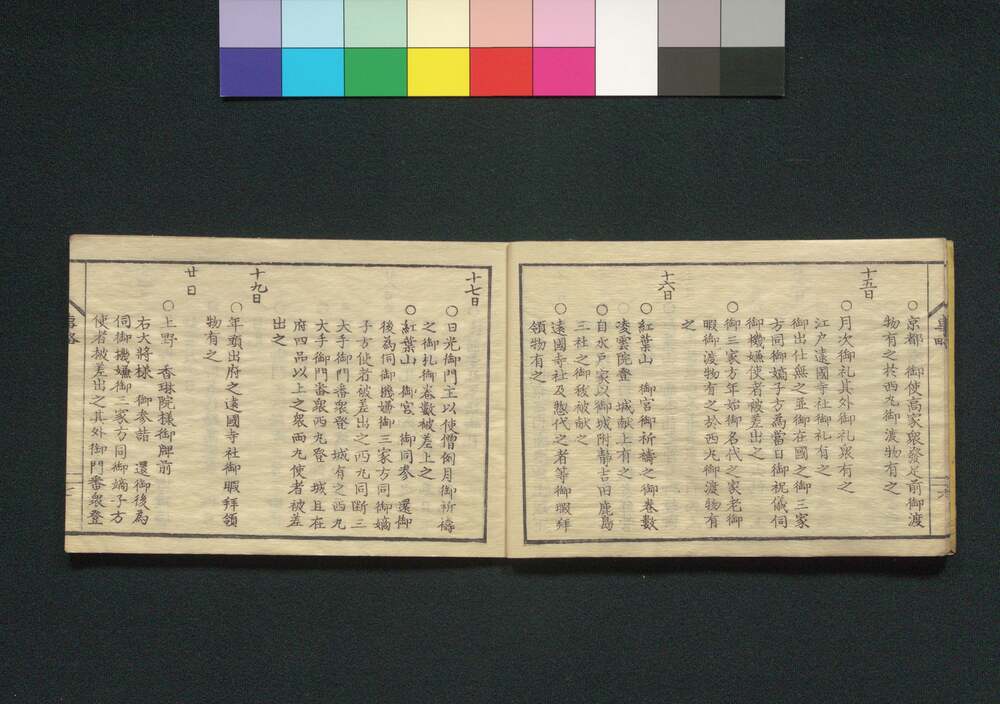 ○京都 御使高家衆發足前御渡
物有之於西丸御渡物有之
十五日
○月次御礼其外御礼衆有之
江戸遠國寺社御礼有之
御出仕無之並御在國之御三家
方同御嫡子方為當日御祝儀伺
御機嫌使者被差出之
○御三家方年始御名代之家老御
暇御渡物有之於西丸御渡物有
之
十六日
○紅葉山 御宮御祈禱之御卷數
凌雲院登 城献上有之
○自水戸家以御城附静吉田鹿島
三社之御秡被献之
○遠國寺社及惣代之者等御暇拜
領物有之
十七日
○日光御門主以使僧例月御祈禱
之御札御卷數被差上之
○紅葉山 御宮 御同参 還御
後為伺御機嫌御三家方同御嫡
子方使者被差出之西丸同断三
大手御門番衆登 城有之西丸
大手御門番衆西丸登 城且在
府四品以上之衆両丸使者被差
出之
十九日
○年頭出府之遠國寺社御暇拜領
物有之
廿日
○上野 香琳院様御牌前
右大將様 御参詣 還御後為
伺御機嫌御三家方同御嫡子方
使者被差出之其外御門番衆登